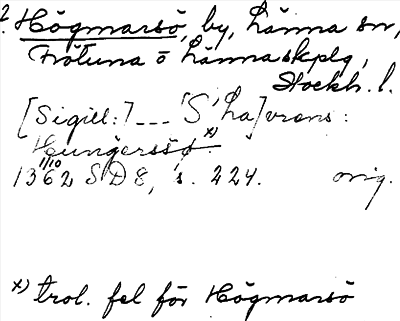 ? Högmarsö, by, Länna sn,
Fröluna o Länna skplg,
Stockh. l.
[Sigill:] --- S' La]vrens:
Hungersø x)
1/10
1362 SD 8, s. 224. orig.
x) trol. fel för Högmarsö